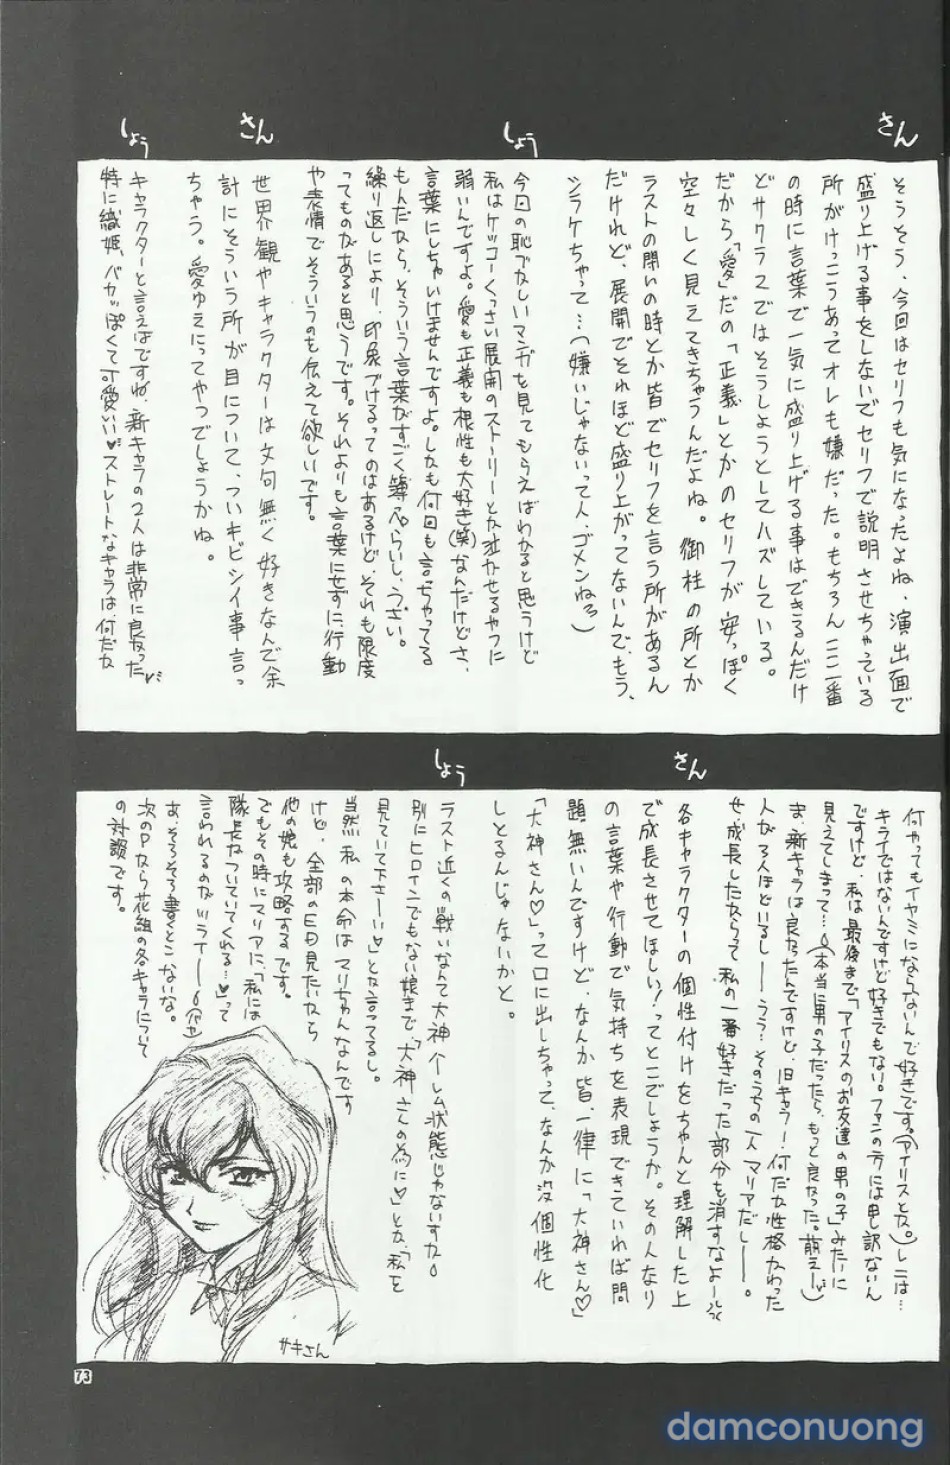 さん
そうそう、今回はセリフも気になったよね、演出面で
盛り上げる事をしないでセリフで説明させちゃっている
所がけっこうあってオレも嫌だった。もちろんここ一番
の時に言葉で一気に盛り上げる事はできるんだけ
どサクラ2ではそうしようとしてハズしている。
だから「愛」だの「正義」とかのセリフが安っぽく
空々しく見えてきちゃうんだよね。御柱の所とか
ラストの闘いの時とか皆でセリフを言う所があるん
だけれど、展開でそれほど盛り上がってないんで、もう、
シラケちゃって…(嫌いじゃないって人、ゴメンねっ)
しょう
今回の恥ずかしいマンガを見てもらえばわかると思うけど
私はケッコーくっさい展開のストーリーとか泣かせるやつに
弱いんですよ。愛も正義も根性も大好き(笑)なんだけどさ、
言葉にしちゃいけませんですよ。しかも何回も言っちゃってる
もんだから、そういう言葉がすごく薄っぺらいし、うざい。
繰り返しにより、印象づけるってのはあるけど、それも限度
ってものがあると思うです。それよりも言葉にせずに、行動
や表情でそういうのを伝えて欲しいです。
さん
世界観やキャラクターは文句無く好きなんで余
計にそういう所が目について、ついキビシイ事言っ
ちゃう。愛ゆえにってやつでしょうかね。
しょう
キャラクターと言えばですね、新キャラの2人は非常に良かった
特に織姫、バカっぽくて可愛いい♥ストレートなキャラは、何だか
何やってもイヤミにならないんで好きです。(アイリスとか。)レニは…
キライではないんですけど好きでもない。ファンの方には申し訳ないん
ですけど、私は最後まで「アイリスのお友達の男の子」みたいに
見えてしまって…(本当に男の子だったら、もっと良かった。萠えー)
ま、新キャラは良かったんですけど、旧キャラー!何だか性格かわった
人が3人ほどいるしーーううう…そのうちの一人マリアだしーー。
せ、成長したからって私の一番好きだった部分を消すなよーっ
さん
各キャラクターの個性付けをちゃんと理解した上
で成長させてほしい!ってとこでしょうか。その人なり
の言葉や行動で気持ちを表現できていれば問
題無いんですけど、なんか皆、一律に「大神さん♡」
「大神さん♡」って口に出しちゃって、なんか没個性化
しとるんじゃないかと。
しょう
ラスト近くの戦いなんて大神ハーレム状態じゃないすか
別にヒロインでもない娘まで「大神さんの為に♡」とか、「私を
見ていて下さーい♡」とか言ってるし。
当然私の本命はマリちゃんなんです
けど、全部のED見たいから
他の娘も攻略するです。
でもその時にマリアに「私には
隊長がついていてくれる…♥」って
言われるのがツライーー
あ、そろそろ書くとこないな。
次のPから花組の各キャラについて
の対談です。
サキさん
73
damconuong